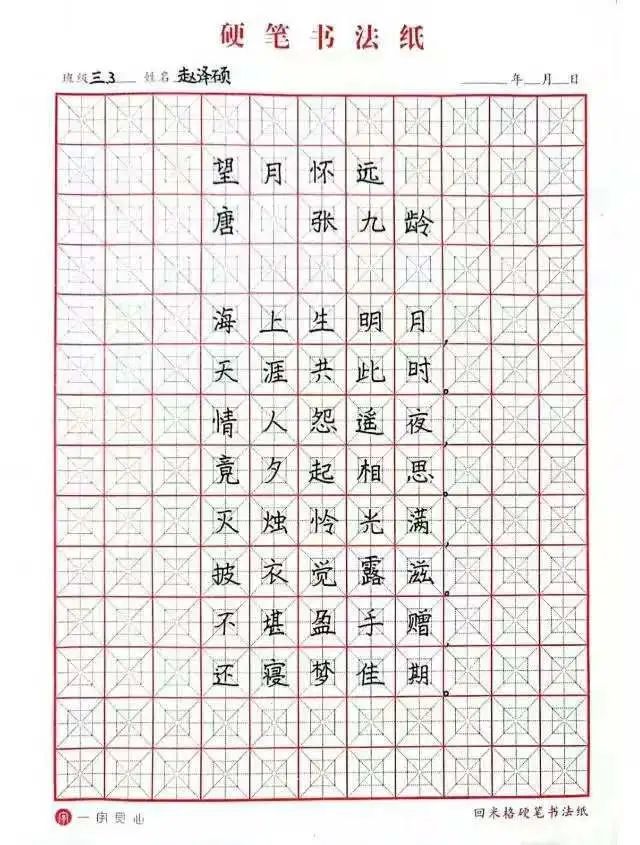 硬笔书法纸
班级三3 姓名赵泽硕 年 月 日
望月怀远
唐 张九龄
海上生明月，
天涯共此时。
情人怨遥夜，
竟夕起相思。
灭烛怜光满，
披衣觉露滋。
不堪盈手赠，
还寝梦佳期。
一字见心 回米格硬笔书法纸